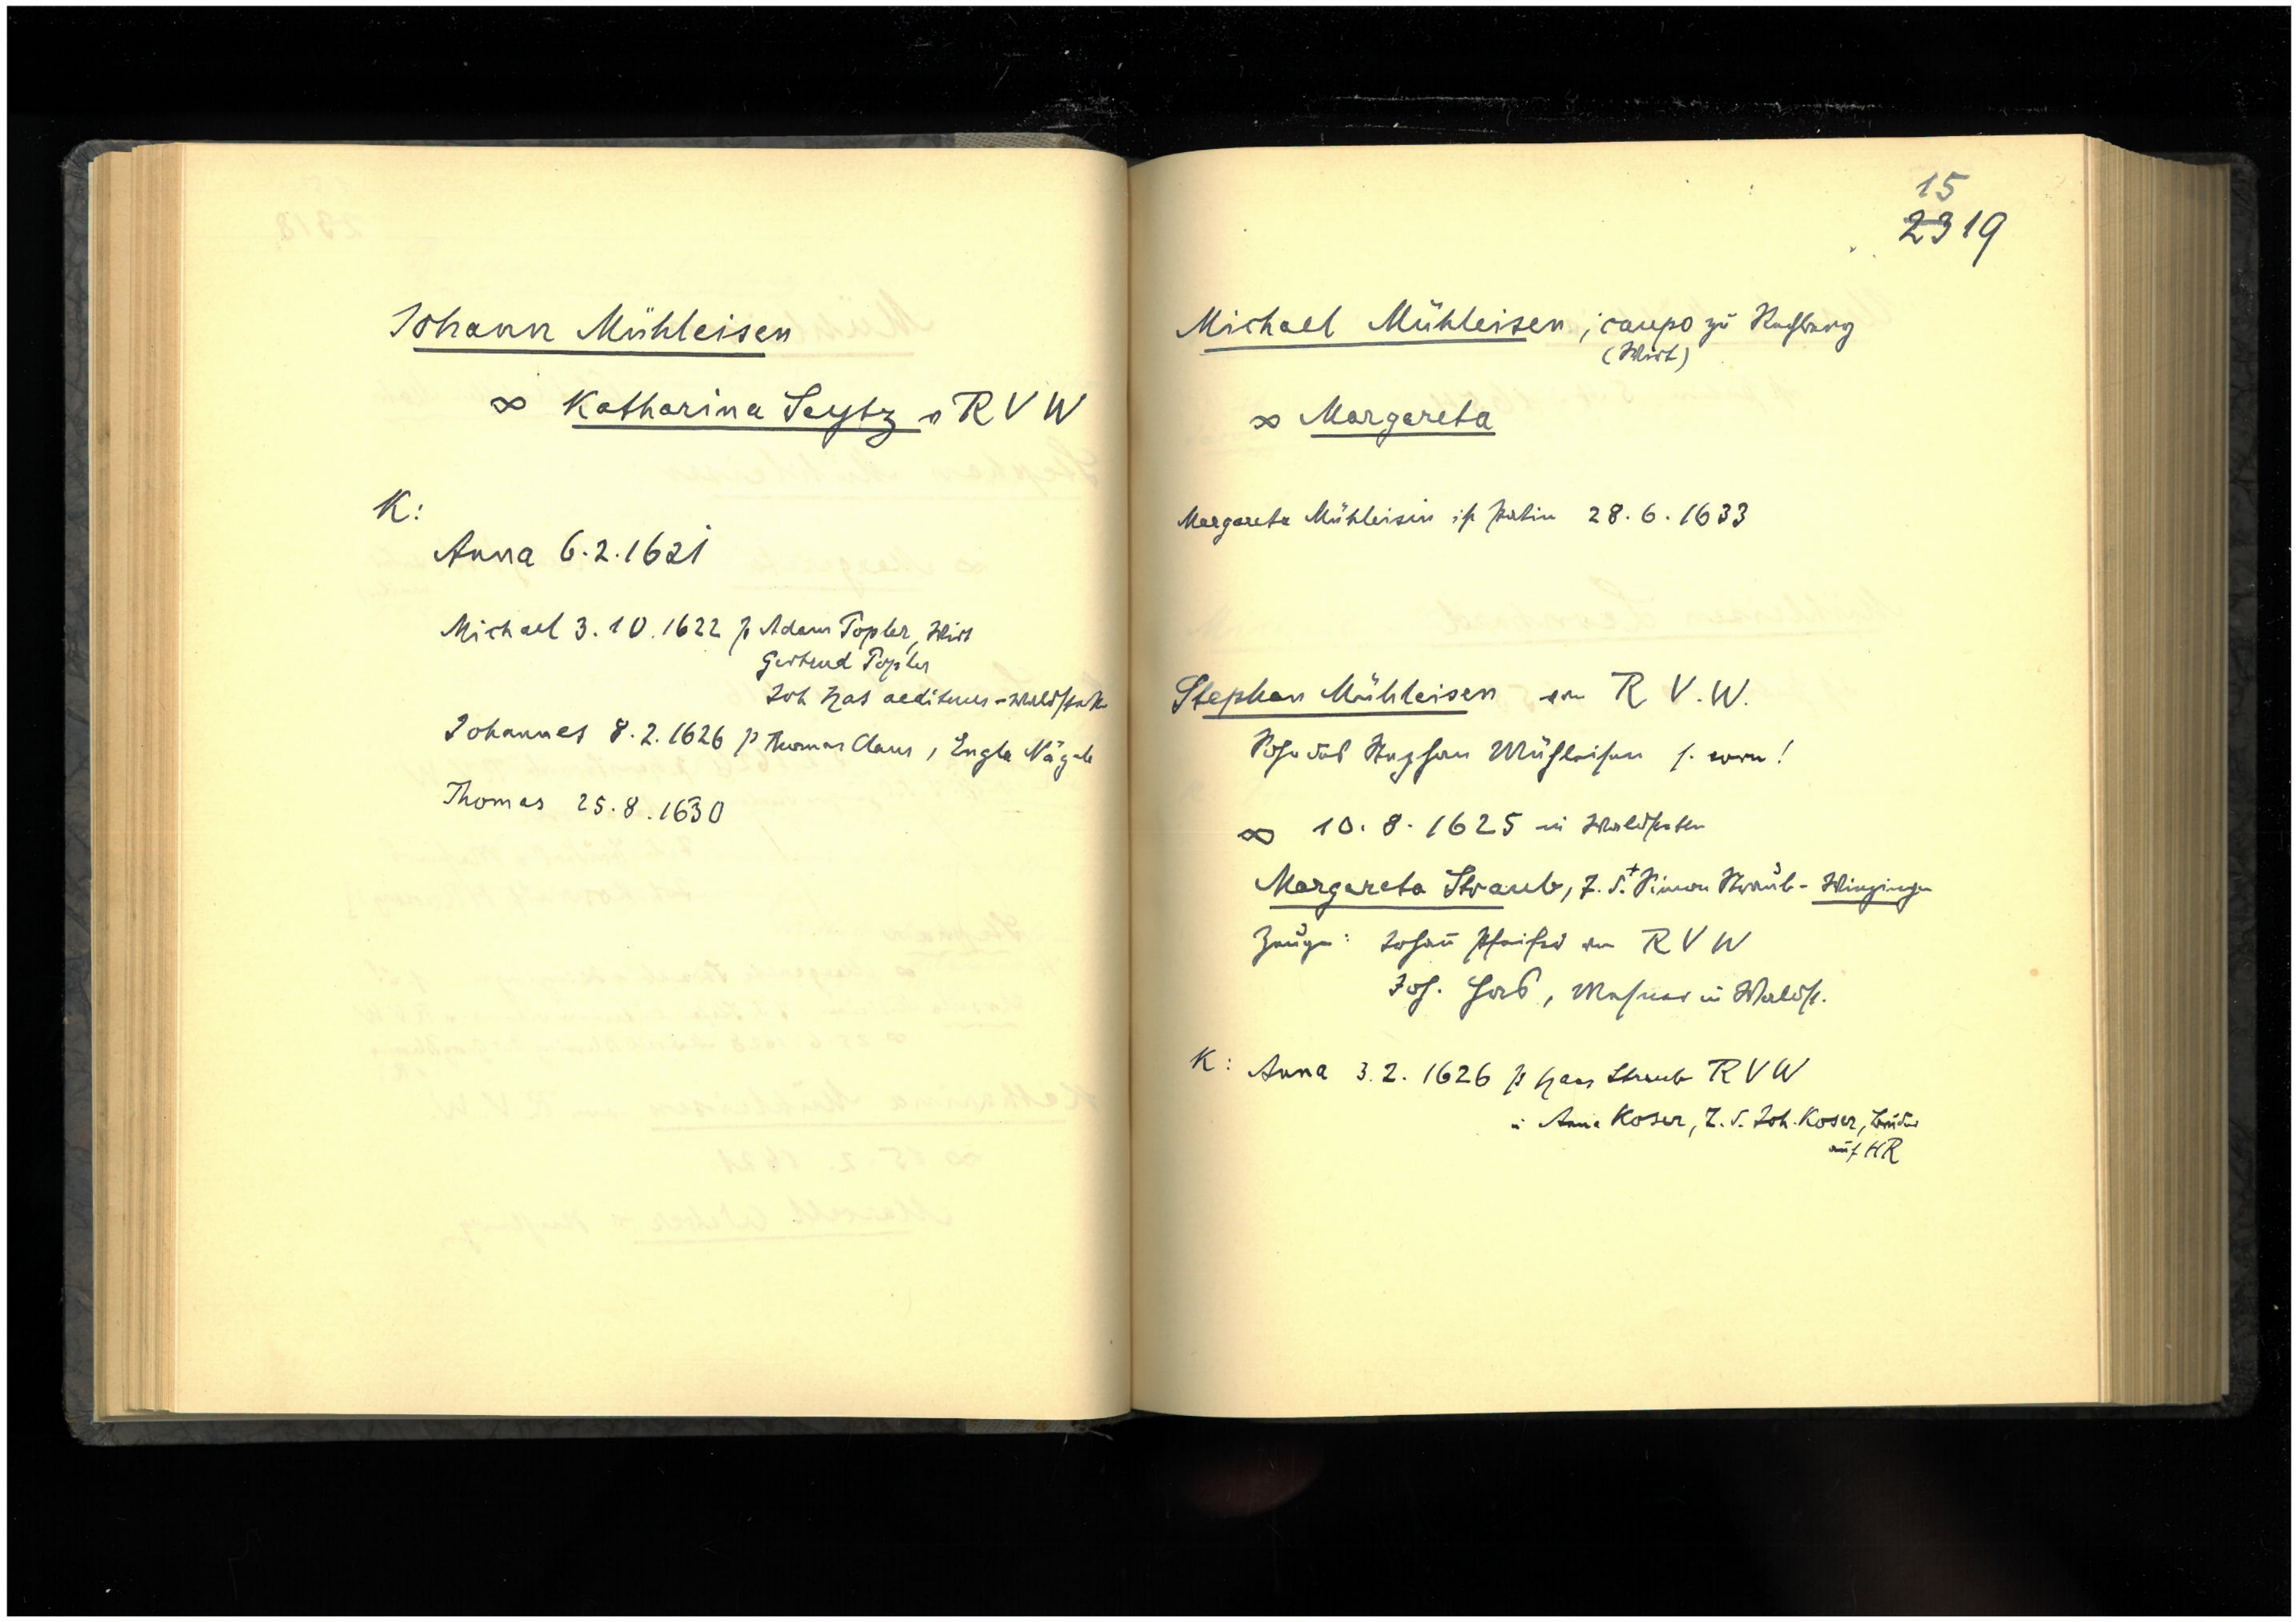 Johann Mühleisen
∞ Katharina Seytz v R V W
K:
Anna 6.2.1621
Michael 3.10.1622 p Adam Topler, Wirt
Gertrud Topler
Joh Has aedituus - Waldstetten
Johannes 8.2.1626 p Thomas Claus, Engla Nägele
Thomas 25.8.1630
15
2319
Michael Mühleisen, caupo zu Rechberg
(Wirt)
∞ Margareta
Margareta Mühleisin ist Patin 28.6.1633
Stephan Mühleisen von R V.W.
Sohn des Stephan Mühleisen s. vorn!
∞ 10.8.1625 in Waldstetten
Margareta Straub, T. d. + Simon Straub - Winzingen
Zeugen: Johan̄ Pfeifer von R V W
Joh. Has, Mesner in Waldst.
K: Anna 3.2.1626 p Hans Straub R V W
u Anna Koser, T. d. Joh. Koser,
auf HR